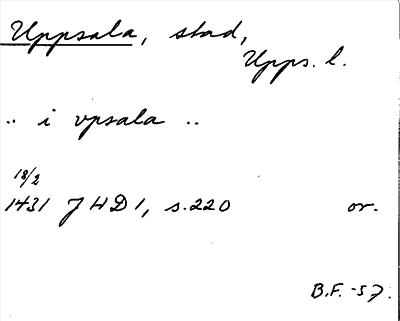 Uppsala, stad,
Upps. l.
.. i vpsala ..
18/2
1431 JHD 1, s. 220 or.
B.F. -57.